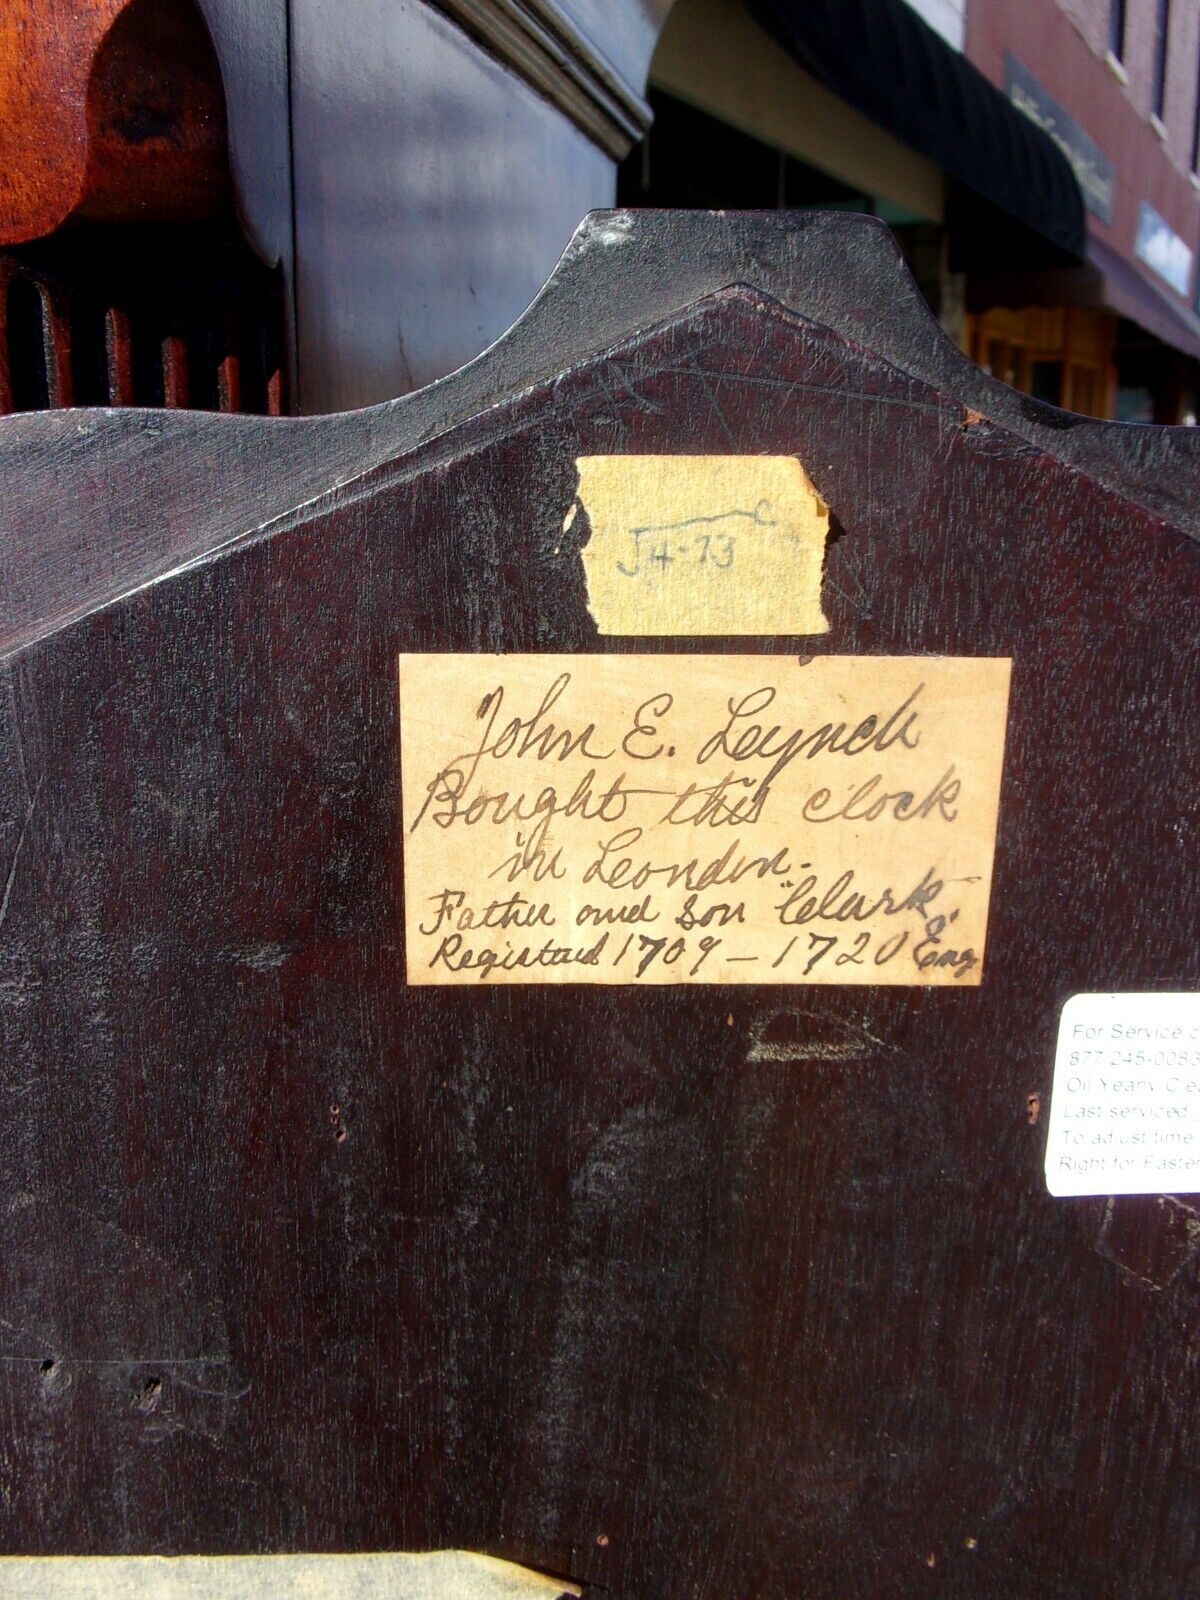 J4-73
John E. Leynch
Bought this clock
in London.
Father and son "Clark"
Registued 1709 - 1720 Eng
For Service c
877 245-0083
Oil Yearly Clea
Last serviced
To adjust time
Right for Faster